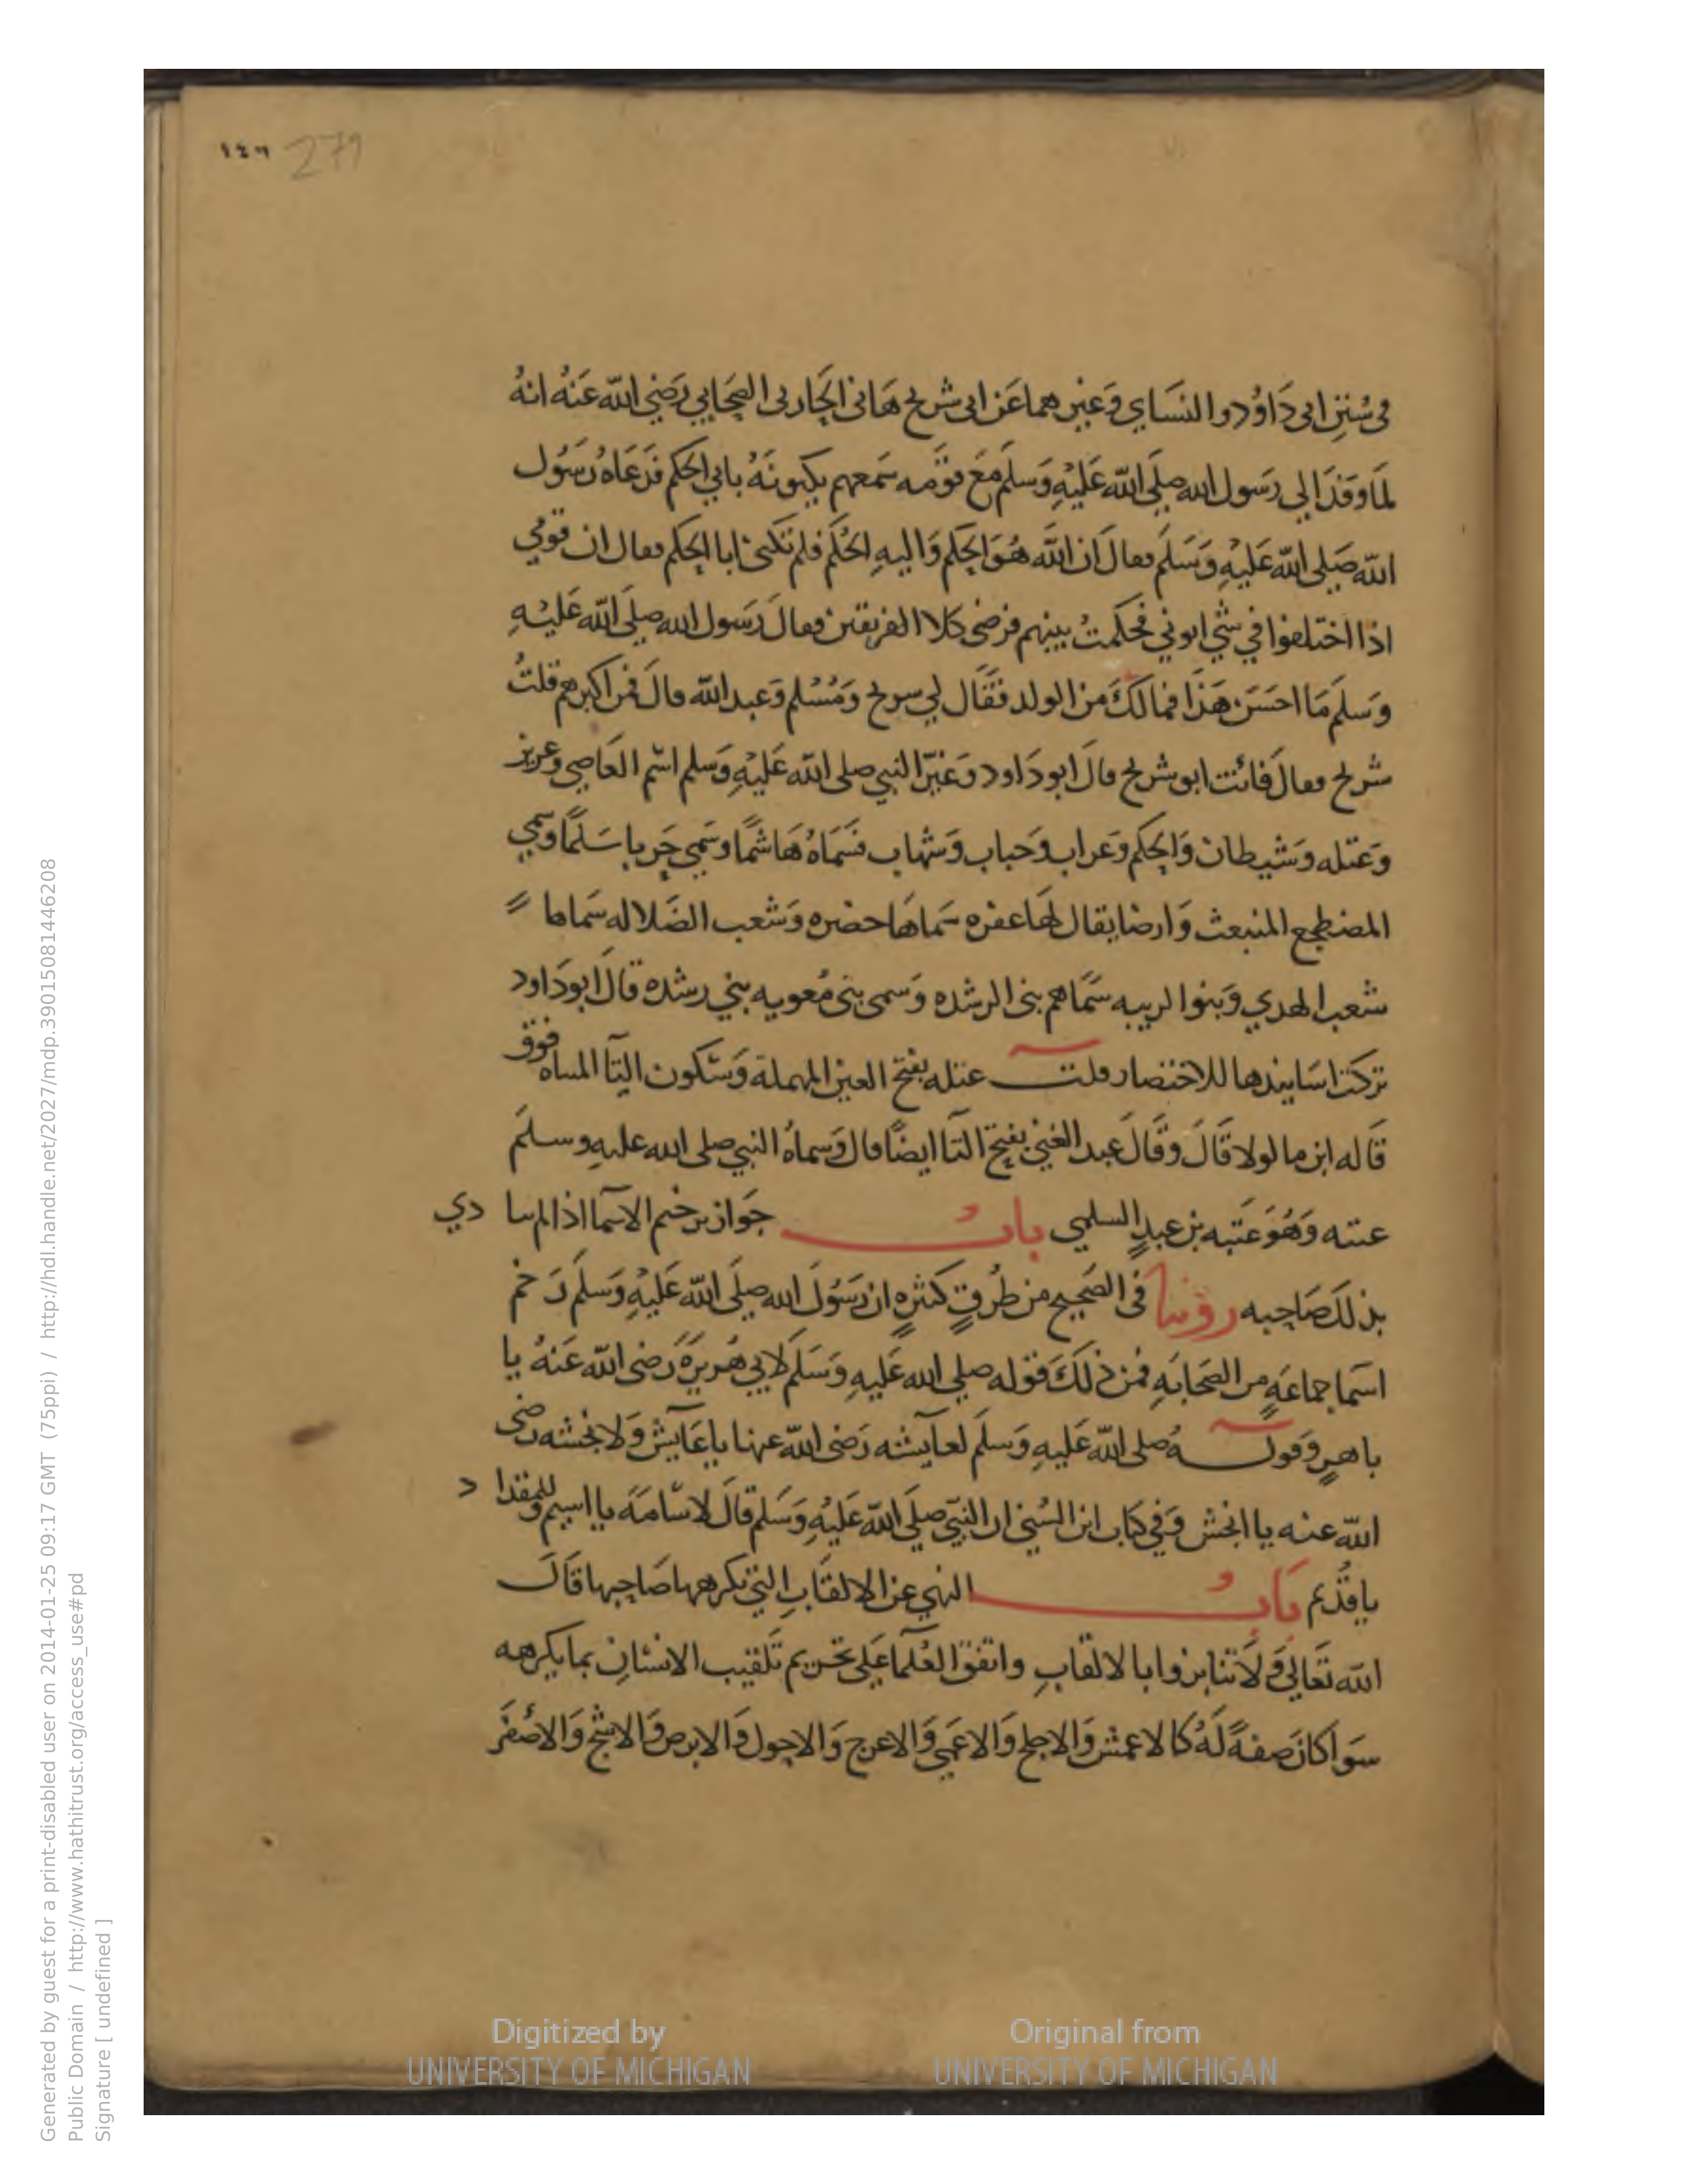 ١٤٦ 279
في سُنن ابي دَاوُد والنسَاي وَغيرهما عَن ابي شريح هَاني الحَارثى الصَحَابي رَضي الله عَنهُ انهُ
لمَا وَفدَ الي رَسول الله صلَى الله عَليْهِ وَسلَم مَعَ قوَمه سَمعهم يكنونَهُ بابي الحكم فدَعَاهُ رَسُول
الله صَلى الله عَليْهِ وَسَلَم فقالَ ان الله هُوَ الحكم وَاليهِ الحُكم فلم تكنىٰ ابا الحكم فقال ان قومي
اذا اختلفوا في شي اتوني فحكمتُ بينهم فرضى كلا الفريقين فقالَ رَسول الله صلَى الله عَليْهِ
وَسلَم مَا احسَنَ هَذا فمالكَ من الولد فقَال لي سريح وَمُسْلم وَعبد الله قالَ فمن اكبرهم قلتُ
شريح فقالَ فانت ابو شريح قالَ ابو دَاود وَغيّر النبي صلى الله عَليْهِ وَسلم اسْم العَاصي وعزيز
وَعتله وَشيطان وَالحكم وَغراب وَحباب وَشهاب فسَمَاهُ هَاشمًا وسَمي حَربا سَلمًا وسمي
المضطجع المنبعث وَارضا يقال لهَا عفره سَماهَا حضره وَشعب الضَلاله سَماها
شعب الهدي وَبنوا الريبه سَمَاهم بنى الرشده وَسمى بنى مُعويه بني رشده قالَ ابو دَاود
تركت اسَانيدها للاختصار قلت عتله بفتح العين المهملة وَسْكون التآ المثناه فوق
قَاله ابن ماكولا قَالَ وَقَالَ عبد الغني بفتح التآ ايضًا قال وَسماهُ النبي صلى الله عليهِ وسلَم
عتبه وَهُوَ عَتبه بن عبدٍ السلمي بابُ جَواز ترخيم الاسمآ اذا لم يتا دي
بذلكَ صَاحِبه روَينا فى الصَحيح من طُرقٍ كثيرهٍ ان رَسُولَ الله صلَى الله عَليْهِ وَسلَم رَخم
اسمآ جماعَهٍ من الصَحَابَهِ فمن ذلكَ قوله صلي الله عَليهِ وَسَلَم لابي هُريرَةَ رَضى الله عَنهُ يا
باهرٍ وَقولهُ صلى الله عَليهِ وَسلَم لعآيشه رَضى الله عنها يا عَآيش وَلانجشه رضى
الله عنه يا انجش وَفي كتاب ابن السُني ان النبَي صلَى الله عَليْهِ وَسَلم قالَ لاسَامَة يا اسيم وللمقدا د
ياقدُم بَابُ النهي عن الالقَابِ التي يكرهها صَاحِبها قَالَ
الله تعَالي وَلَا تنابزوا بالالقابِ واتفقَ العُلمآ عَلى تحريم تَلقيب الانسْانِ بما يكرهه
سَوآ كانَ صفةً لَهُ كالاعمش وَالاجلح وَالاعَمي وَالاعرج وَالاحول وَالابرص وَالاشج وَالاصْفَر
Digitized by UNIVERSITY OF MICHIGAN
Original from UNIVERSITY OF MICHIGAN
Generated by guest for a print-disabled user on 2014-01-25 09:17 GMT (75ppi) / http://hdl.handle.net/2027/mdp.39015081446208
Public Domain / http://www.hathitrust.org/access_use#pd
Signature [ undefined ]